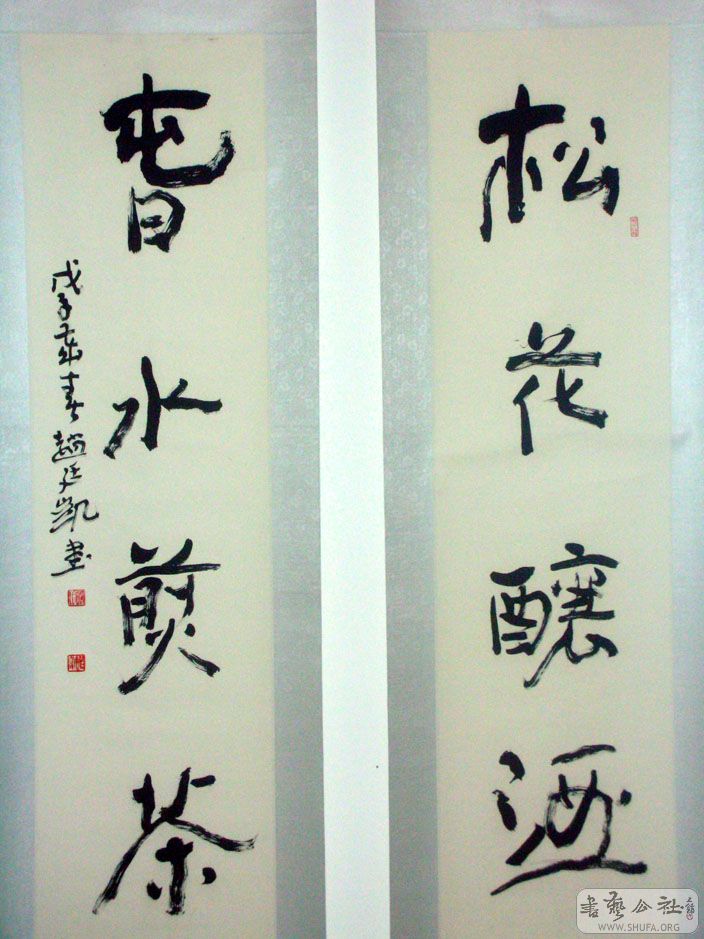 松花釀酒
旾水煎茶
戊子春趙廷凱書
書藝公社
WWW.SHUFA.ORG